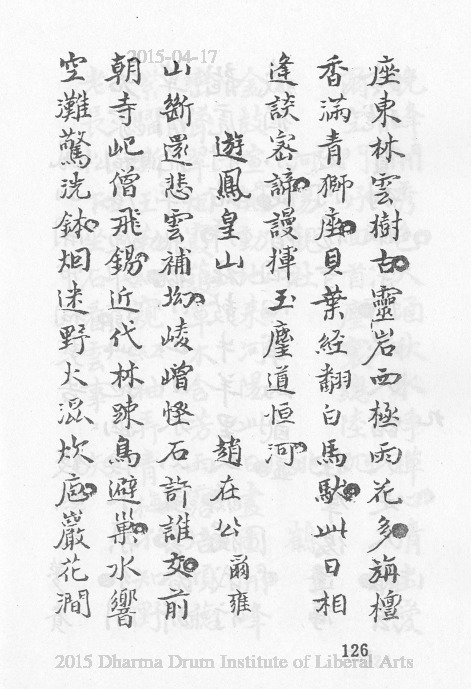 2015-04-17
座東林雲樹古靈岩西極雨花多旃檀
香滿青獅座貝葉經翻白馬馱此日相
逢談密諦謾揮玉麈道恒河
遊鳳皇山 趙在公 爾雍
山斷還悲雲補坳崚嶒怪石許誰交前
朝寺圮僧飛錫近代林踈鳥避巢水響
空灘驚洗鉢烟迷野火混炊庖巖花澗
126
2015 Dharma Drum Institute of Liberal Arts